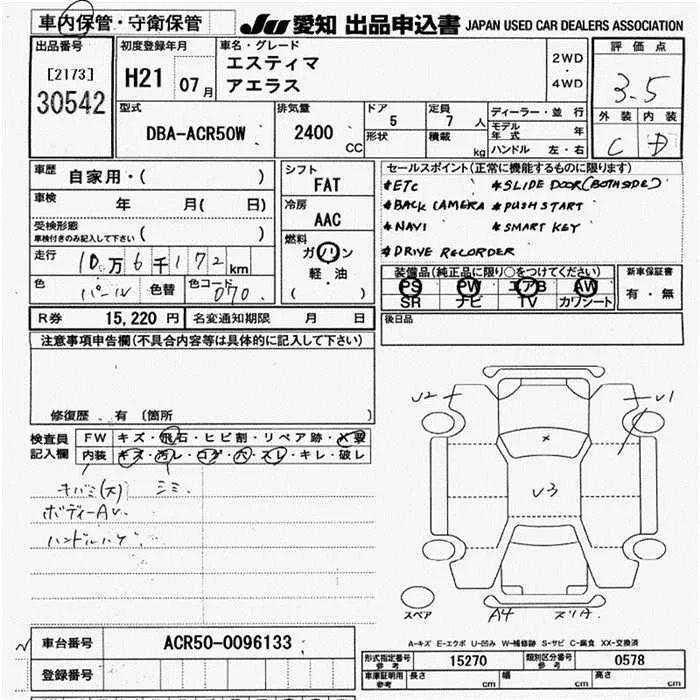 車内保管・守衛保管
JU 愛知 出品申込書 JAPAN USED CAR DEALERS ASSOCIATION
出品番号
[2173]
30542
初度登録年月
H21 07月
車名・グレード
エスティマ
アエラス
2WD
・
4WD
評価点
3.5
外装 内装
C D
型式
DBA-ACR50W
排気量
2400 CC
ドア
5
形状
定員
7 人
積載
kg
ディーラー・並行
モデル年式 年
ハンドル 左・右
車歴 自家用・( )
車検 年 月( 日)
受検形態
車検付きのみ記入して下さい ( )
走行 10万6千172km
色 パール 色替 色コード 070
シフト
FAT
冷房
AAC
燃料
ガソリン
軽・油
( )
セールスポイント(正常に機能するものに限ります)
*ETC *SLIDE DOOR(BOTHSIDE)
*BACK CAMERA *PUSH START
*NAVI *SMART KEY
*DRIVE RECORDER
装備品(純正品に限り○をつけてください)
PS PW エアB AW
SR ナビ TV カワシート
新車保証書
有・無
R券 15,220 円 名変通知期限 月 日
後日品
注意事項申告欄(不具合内容等は具体的に記入して下さい)
修復歴 . 有 (箇所 )
検査員記入欄
FW キズ・飛石・ヒビ割・リペア跡・X要
内装 キズ・汚レ・コゲ・穴・スレ・キレ・破レ
キバミ(大) シミ
ボディーAU.
ハンドルハゲ
U2
U1
U3
スペア
A4 スリA.
車台番号 ACR50-0096133
登録番号
A-キズ E-エクボ U-凹み W-補修跡 S-サビ C-腐食 XX-交換済
形式指定番号参考 15270 類別区分番号参考 0578
車庫証明用参考 長さ cm 幅 cm 高さ cm